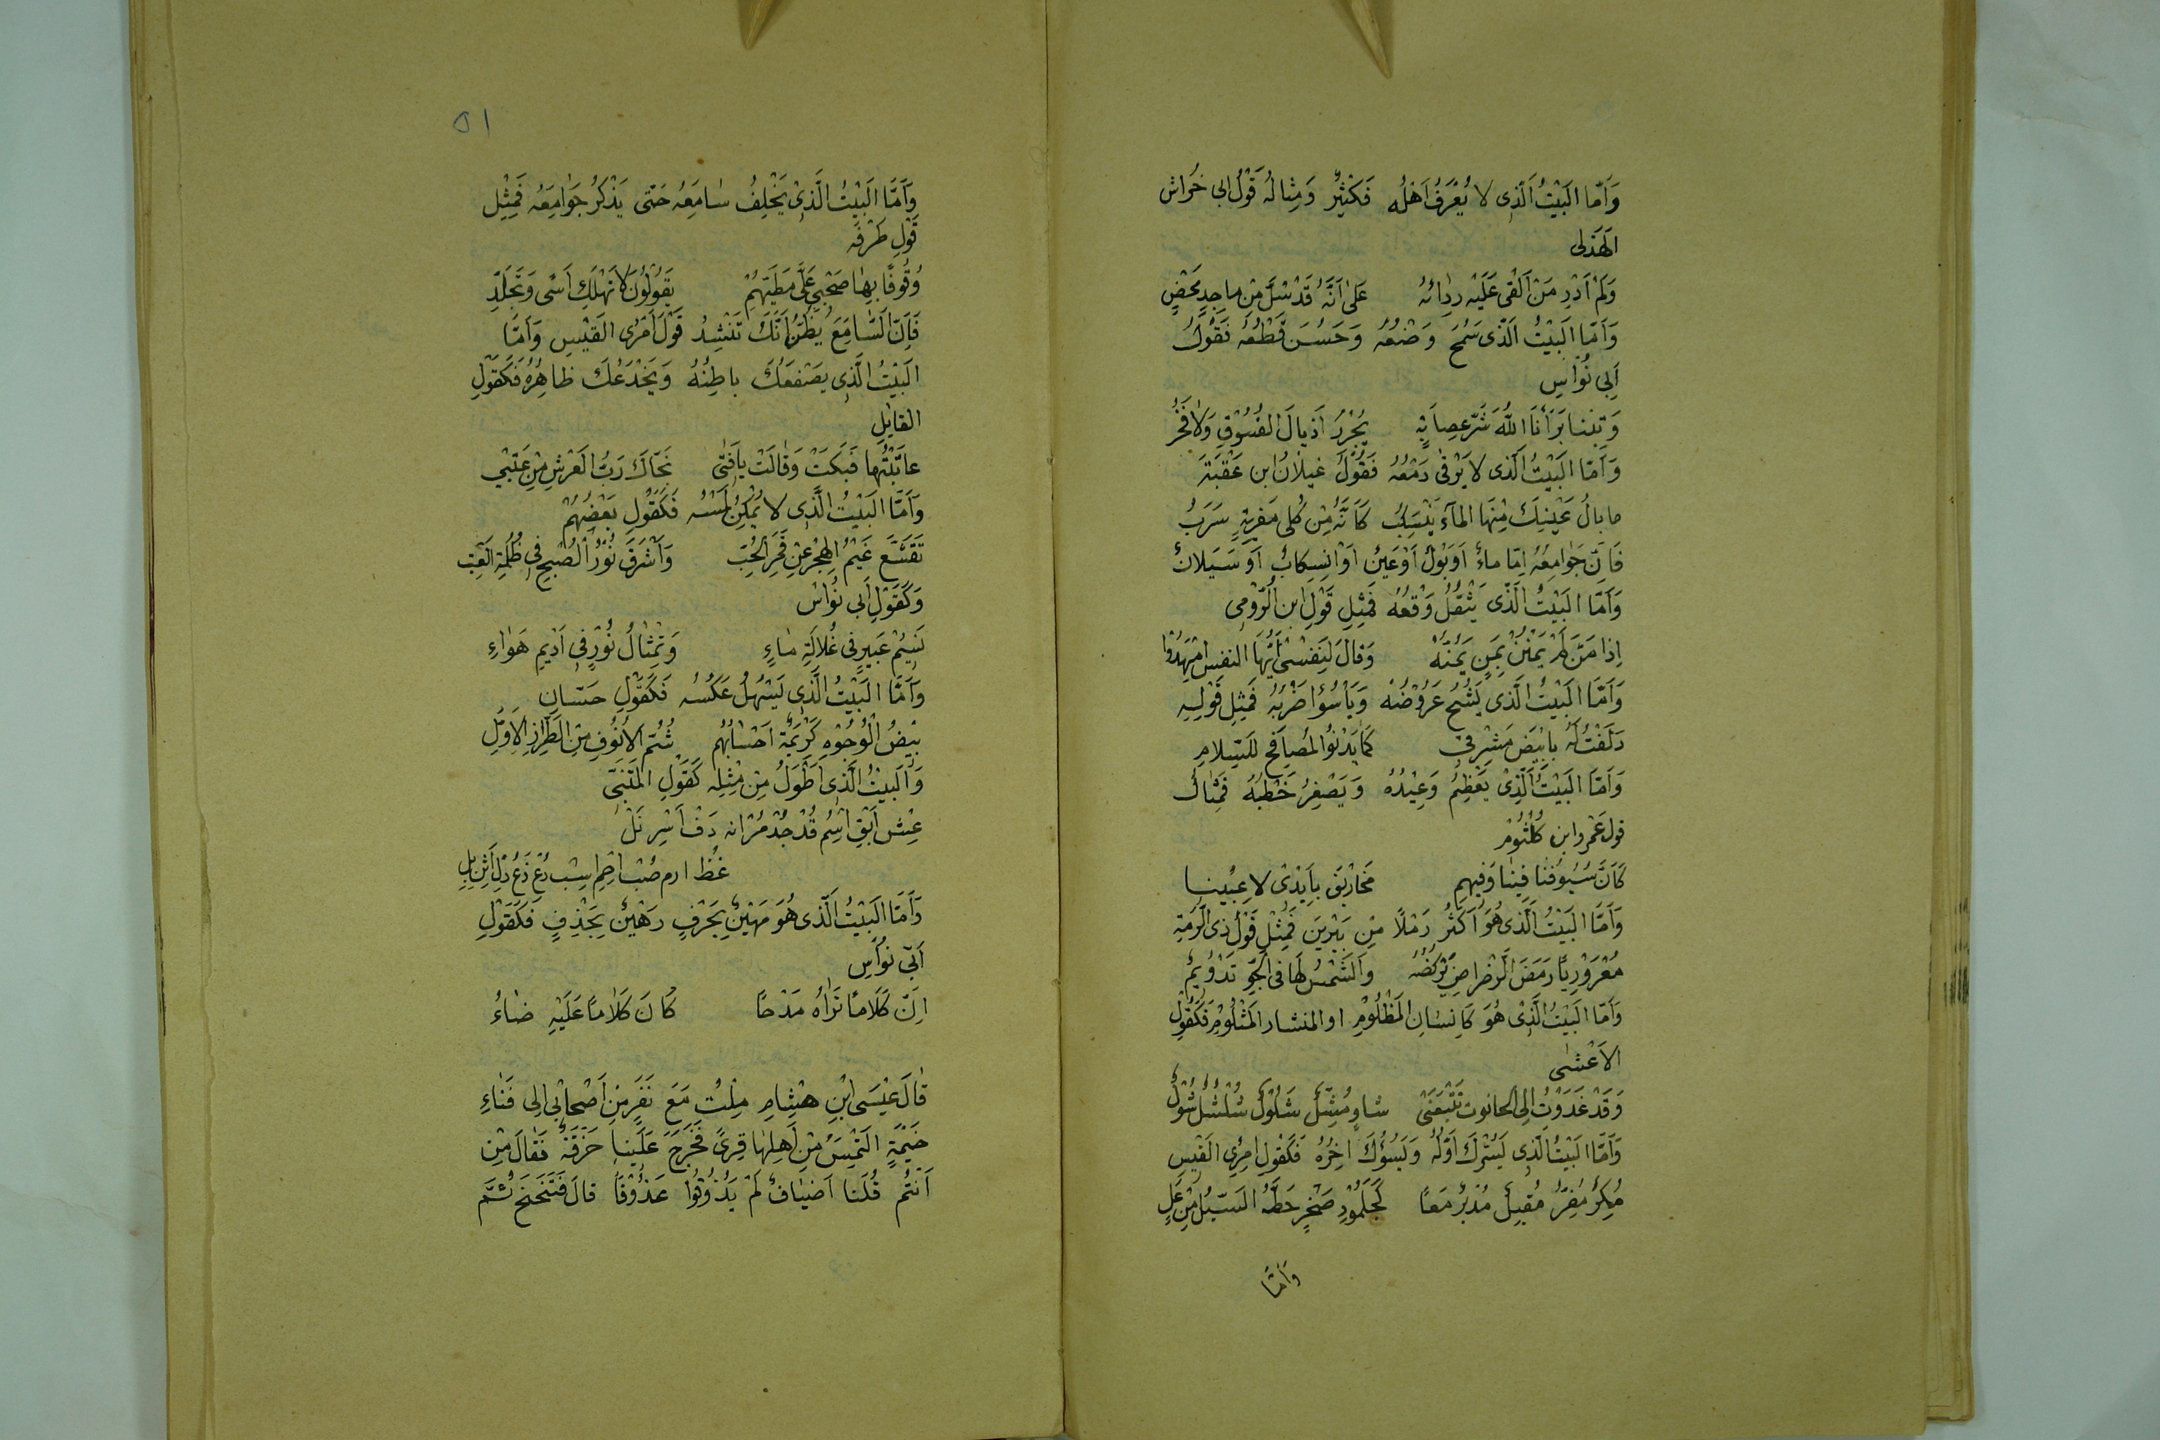 وَاَمّا البَيْتُ اَلّذِى لا يُعْرَفُ اَهْلُه فَكَثِيْرٌ وَمِثالُهُ قَوْلُ ابى خَراش
الَهَذلى
وَلَمْ اَدْرِ مَنْ اَلْقٰى عَلَيْهِ رِدائهُ عَلىٰ اَنّهُ قَدْ سُلَّ مِنْ ماجِدٍ مَحْضٍ
وَاَمّا البَيْتُ الّذى سَمُحَ وَضْعُهُ وَحَسُنَ قَطْعُهُ فَقَوْلُ
اَبِى نُواسِ
وَبِتْنا بَرَآنَا اللهُ شَرّ عِصابَةٍ يُجْرِرُ اَذْيالَ الفُسُوقِ وَلا فَخْرُ
وَاَمّا البَيْتُ اَلّذى لا يَرْقٰى دَمْعُهُ فَقَوْلُ غيلانُ ابن عَقْبَةَ
ما بالُ عَيْنِكَ مِنْهَا المآءَ يَنْسَكِبُ كَاَنّهُ مِنْ كُلى مَفرِيّةٍ سَرَبُ
فَاِنّ جَوامِعُهُ اِمّا ماءٌ اَوَبَوْلٌ اَوْعَينٌ اَوْ انْسِكابٌ اَوْ سَيَلانٌ
وَاَمّا البَيْتُ الّذى يَثْقُلُ وَقْعُهُ فَمِثْلِ قَوْلِ ابن الرّوْمى
اِذا مَنّ لَمْ يَمْنُنْ بِمَنٍ يَمُنّهُ وَقالَ لِنَفسْى اَيُّهَا النفسُ امْهَدْوا
وَاَمّا البَيْتُ الّذى يَشُحُ عَرُوْضُهُ وَيَاْسُوْا ضَرْبُهُ فَمِثِلِ قَولِهِ
دَلَفْتُ لَهُ باَبْيَضِ مَشْرِفىّ كَما يَدْنُوا المُصافِحُ لِلسّلامِ
وَاَمّا البَيْتُ الّذِىْ يَعْظِمُ وَعِيْدُهُ وَيَصْغِرُ خَطْبُهُ فَمِثالُ
قول عَمْرو ابن كُلْثُوْمْ
كَاَنّ سُيُوفَنٰا فِينٰا وَفِيهِم مَخاريقٌ بِاَيْدْى لاعِبْينا
وَاَمّا البَيْتُ الّذى هُوَ اَكْثَرُ رَمْلًا مِنْ يَبْرينَ فَمِثْلِ قَوْلُ ذى الرُمّةِ
مُعْرَوْرِيًا رَمَضَ الرّضْراضِ يَرْكُضُهُ وَالشَمْسُ لَها فى الجَوِّ تَدْوِيْمٌ
وَاَمّا البَيْتُ الّذِى هُوَ كَانسٰانِ المَظْلُوْمِ او المنشار المَثْلُوْمِ فَكَقَوْلِ
الاَعْشٰى
وَقَدْ غَدَوْتُ اِلى الحانوت تَتْبَعَنْى شاوٍ مُشِلٌّ شَلُوْلٌ شُلْشُلٌ شَوْلٌ
وَاَمّا البَيْتُ الّذِى يَسُرّكَ اَوّلُهُ وَيَسُوؤُكَ اٰخِرُهُ فَكَقْولِ امْرِئ القَيْسِ
مُكِرٌ مُفِرُّ مُقْبِلٌ مُدْبُرٌ مَعًا كَجَلْمُوْدِ صَخْرٍ حَطّهُ السّيْلُ مِنْ عَلٍ
وَاَمّا
٥١
وَاَمَّا البَيْتُ الّذِىْ يَخْلِفُ سٰامِعَهُ حَتّى يَذْكُرُ جَوٰامِعَهُ فَمِثْلِ
قَوْلِ طَرْفَه
وُقُوفًا بِها صَحْبى عَلَىّ مَطِيّهُمْ يَقُوْلُوْنَ لا تَهْلَكِ اَسًى وَتَجَلّدِ
فَاِنّ السّامِعَ يَظُنُّ اَنّكَ تَنْشِدُ قَوْلَ اَمْرَئ القَيْسِ وَاَمّا
البَيْتُ الّذِى يصَفَعَكَ باطِنُهُ وَيَخْدَعُكَ ظاهِرُهُ فَكَقَوْلِ
القايلِ
عاتَبْتُها فَبَكَتْ وَقالَتْ يا فَتٰى نَجّاكَ رَبُّ العَرْشِ مِنْ عَتْبْى
وَاَمّا البَيْتُ الّذِى لا يُمْكِنُ لَمْسُه فَكَقَوْلِ بَعْضُهُمْ
تَقَشّعَ غَيْمُ الِهجْرِ عَنْ قَمَرِ الحُبّ وَاَشْرَقَ نُوْرُ الصُبْحِ فى ظُلْمَةِ العَتْبِ
وَكَقَوْلِ اَبى نُواسْ
نَسِيْمُ عَبيرٍ فى غُلالَةِ مٰاءٍ وَتِمْثٰالُ نُوْرٍ فى اَدْيمِ هَوٰاءِ
وَاَمّا البَيْتُ الّذِى يَسْهُلُ عَكْسُهُ فَكَقَوْلِ حَسّانِ
بِيْضُ الوُجُوْهِ كَرْيَمَةٌ اَحْسٰابُهُمْ شُمّ الاُنُوفِ مِنَ الطِرازِ الاَوّلِ
وَالَبيْتُ الّذى اَطْوَلُ مِنْ مِثْلِه كَقَوْلِ المَتَنبّى
عِشِ اَبْقِ اسْمُ قُدْ جُدْ مُرْ انه رَفْ اَسْرِ نَلْ
غُظْ ارم صُبْ احْمِ
وَاَمّا البَيْتُ الّذى هُوَ مَهْيَنٌ بِحَرْفٍ رَهْيَنٌ بِحَذْفٍ فَكَقَوْلِ
اَبىّ نُواسِ
اِنّ كَلامًا تَراهُ مَدْحًا كانَ كَلامًا عَلَيْهِ ضٰاءُ
قالَ عَيْسىَ ابْنِ هِشٰامِ مِلْتُ مَعَ نَفَرٍ مِنْ اَصْحابْى اِلى فَناءِ
خَيْمَةٍ التَمِسُ مِنْ اَهلِها قِرىً فَخَرَجَ عَلَيْنا حَزَقّةٌ فَقالَ مَنْ
اَنْتُمْ قُلْنا اَضيٰافٌ لَمْ يَذُوقُوْا عَذُوْفًا قالَ فَتَنَحْنَحَ ثُمَّ